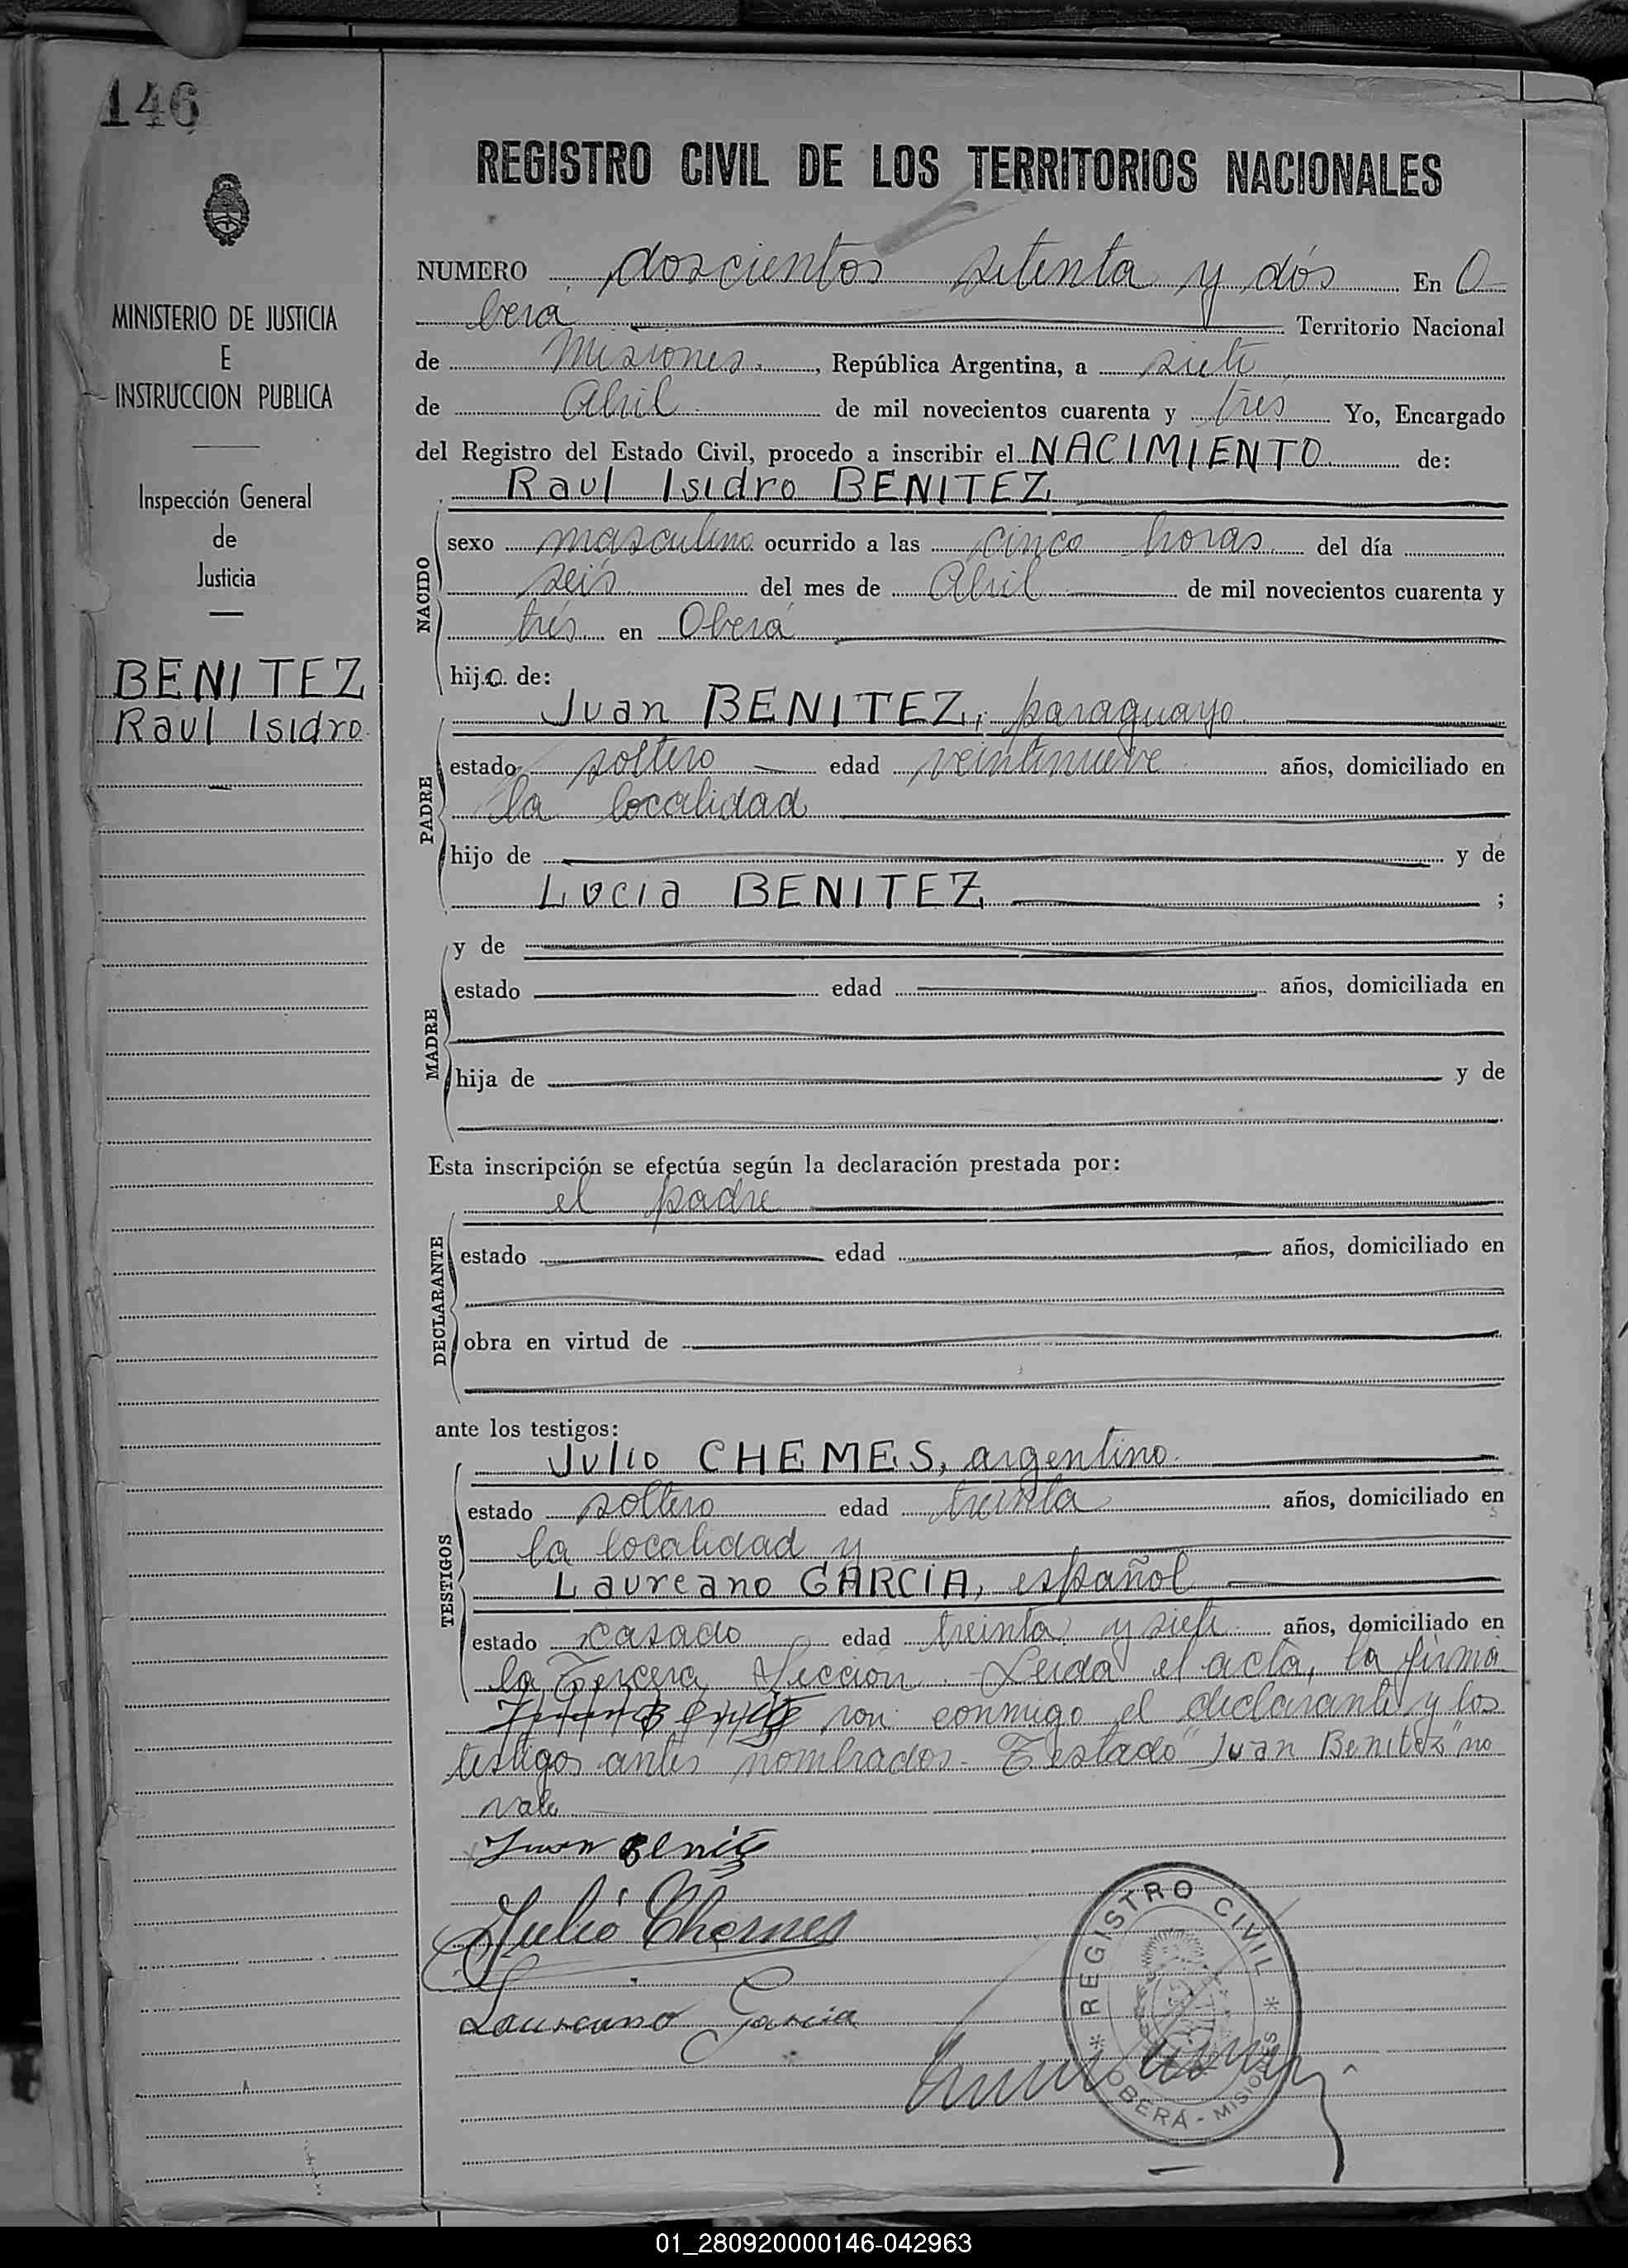 146
REGISTRO CIVIL DE LOS TERRITORIOS NACIONALES
MINISTERIO DE JUSTICIA
E
INSTRUCCION PUBLICA
Inspección General
de
Justicia
BENITEZ
Raul Isidro
NUMERO doscientos setenta y dós En O-
berá Territorio Nacional
de Misiones, República Argentina, a siete
de Abril de mil novecientos cuarenta y trés Yo, Encargado
del Registro del Estado Civil, procedo a inscribir el NACIMIENTO de:
Raul Isidro BENITEZ
NACIDO
sexo masculino ocurrido a las cinco horas del día
seis del mes de Abril de mil novecientos cuarenta y
trés en Oberá
hijo de:
Juan BENITEZ, paraguayo
PADRE
estado soltero edad veintinueve años, domiciliado en
la localidad
hijo de y de
Lucia BENITEZ ;
MADRE
y de
estado edad años, domiciliada en
hija de y de
Esta inscripción se efectúa según la declaración prestada por:
el padre
DECLARANTE
estado edad años, domiciliado en
obra en virtud de
ante los testigos:
Julio CHEMES, argentino
TESTIGOS
estado soltero edad treinta años, domiciliado en
la localidad y
Laureano GARCIA, español
estado casado edad treinta y siete años, domiciliado en
la Tercera Sección. Leida el acta, la firma
Juan Benitez ron conmigo el declarante y los
testigos antes nombrados- Testado "Juan Benitez" no
vale
Juan Benitez
Julio Chemes
Laureano Garcia
REGISTRO CIVIL
OBERÁ - MISIONES
01_280920000146-042963